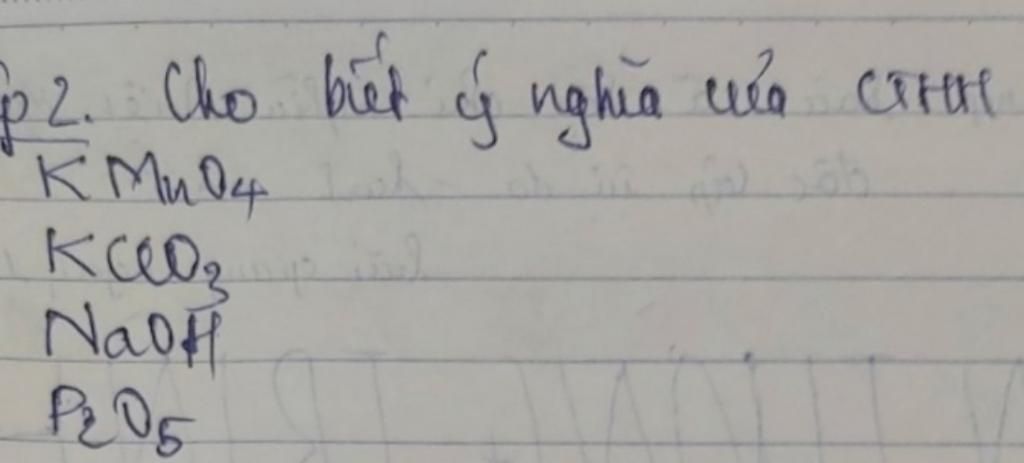 p2. Cho biết ý nghĩa của CTHH
KMnO4
KClO3
NaOH
P2O5